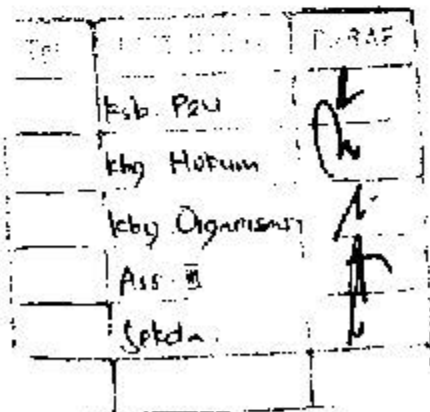 Tgl PARAF
ksb. P2U
kbg Hukum
kbg Organisasi
Ass III
Sekda